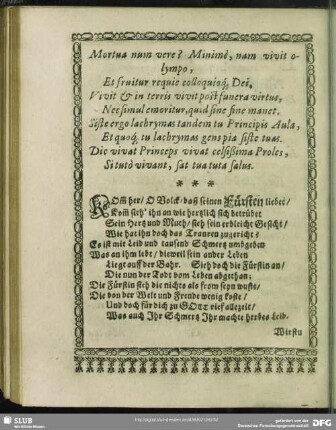 Mortua num vere? Minimè, nam vivit o-
lympo,
Et fruitur requie colloquioq́; Dei.
Vivit & in terris vivit post funera virtus,
Nec simul emoritur, quid sine fine manet.
Siste ergo lachrymas tandem tu Principis Aula,
Et quoq́; tu lachrymas gens pia siste tuas.
Dic vivat Princeps vivat celsissima Proles,
Si tutò vivant, sat tua tuta salus.
* * *
KOm̃ her/ O Volck/ daß seinen Fürsten liebet/
Kom̃ sieh' ihn an wie hertzlich sich betrübet
Sein Hertz und Muth/ sieh sein erbleicht Gesicht/
Wie hat ihn doch das Trauren zugericht!
Es ist mit Leid und tausend Schmertz umbgeben
Was an ihm lebt/ dieweil sein ander Leben
Liegt auff der Bahr. Sieh doch die Fürstin an/
Die nun der Todt vom Leben abgethan:
Die Fürstin sieh die nichts als from seyn wuste/
Die von der Welt und Freude wenig koste/
Und doch für dich zu GOtt rieff allezeit/
Was auch Ihr Schmertz Ihr machte herbes Leid.
Wirstu
SLUB
Wir führen Wissen.
gefördert von der
Deutschen Forschungsgemeinschaft
DFG